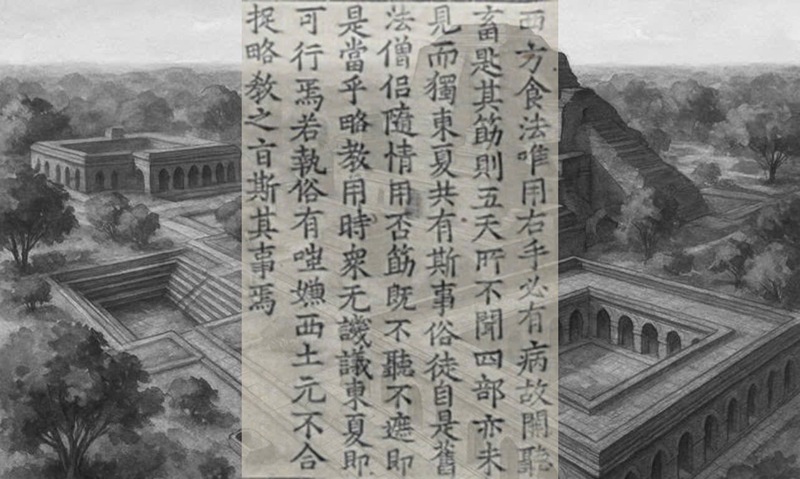 西方食法唯用右手必有病故開聽
畜匙其筯則五天所不聞四部亦未
見而獨東夏共有斯事俗徒自是舊
法僧侶隨情用否筯既不聽不遮即
是當乎略教用時衆无譏議東夏即
可行焉若執俗有嗤嫌西土元不合
捉略教之㫖斯其事焉